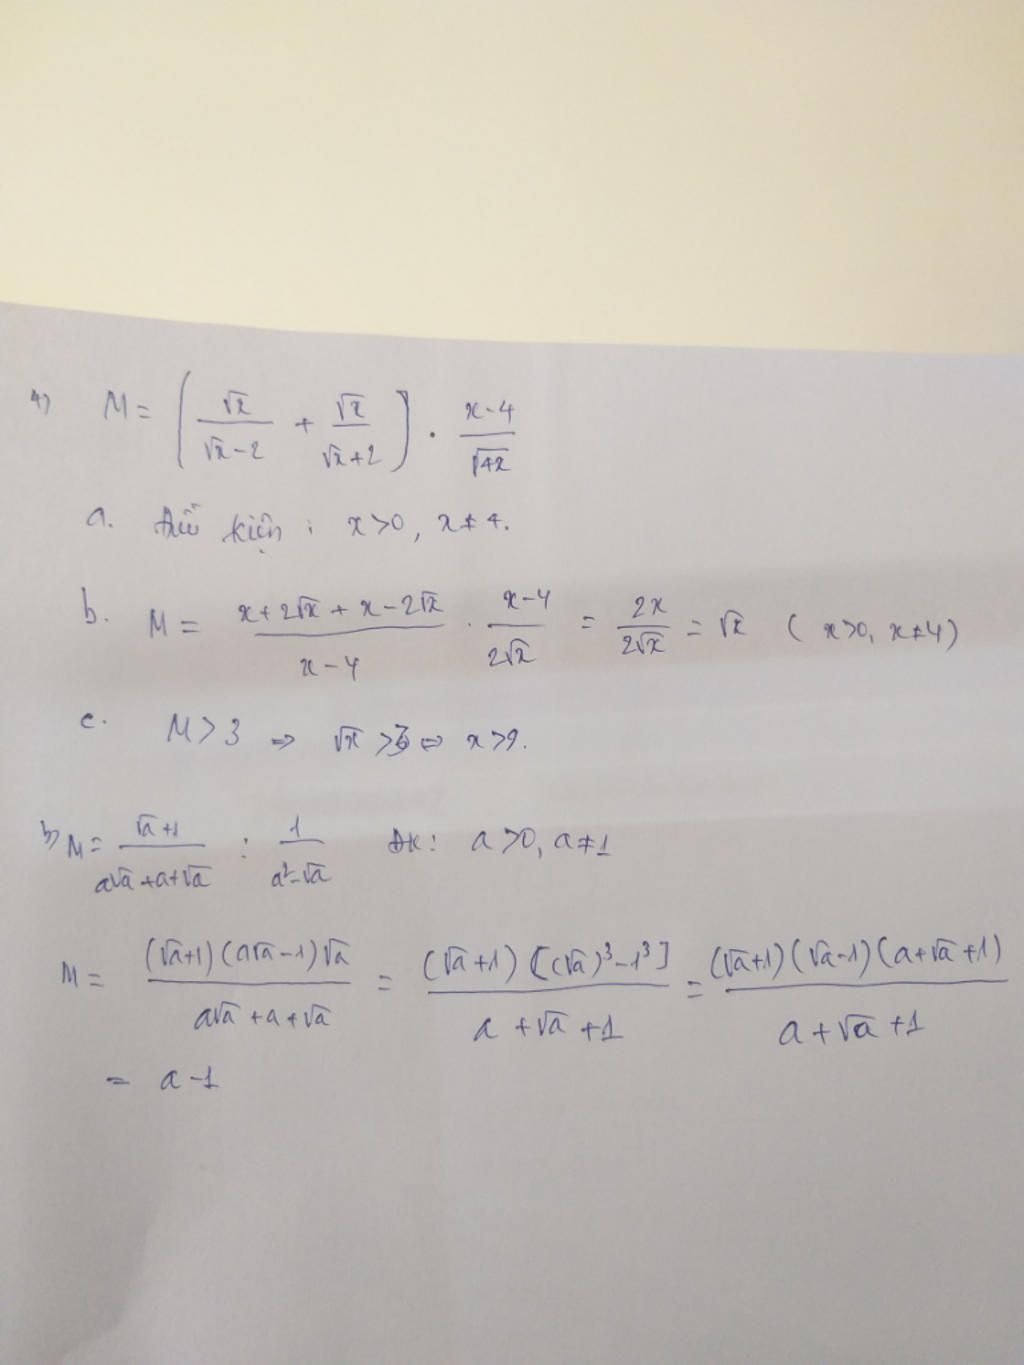 4) M = ( √x / (√x - 2) + √x / (√x + 2) ) . (x - 4) / √4x
a. kiện : x > 0, x ≠ 4.
b. M = (x + 2√x + x - 2√x) / (x - 4) . (x - 4) / 2√x = 2x / 2√x = √x ( x > 0, x ≠ 4 )
c. M > 3 => √x > 3 <=> x > 9.
5) M = (√a + 1) / (a√a + a + √a) : 1 / (a² - √a) ĐK : a > 0, a ≠ 1
M = (√a + 1)(a√a - 1)√a / (a√a + a + √a) = (√a + 1)[(√a)³ - 1³] / (a + √a + 1) = (√a + 1)(√a - 1)(a + √a + 1) / (a + √a + 1)
= a - 1